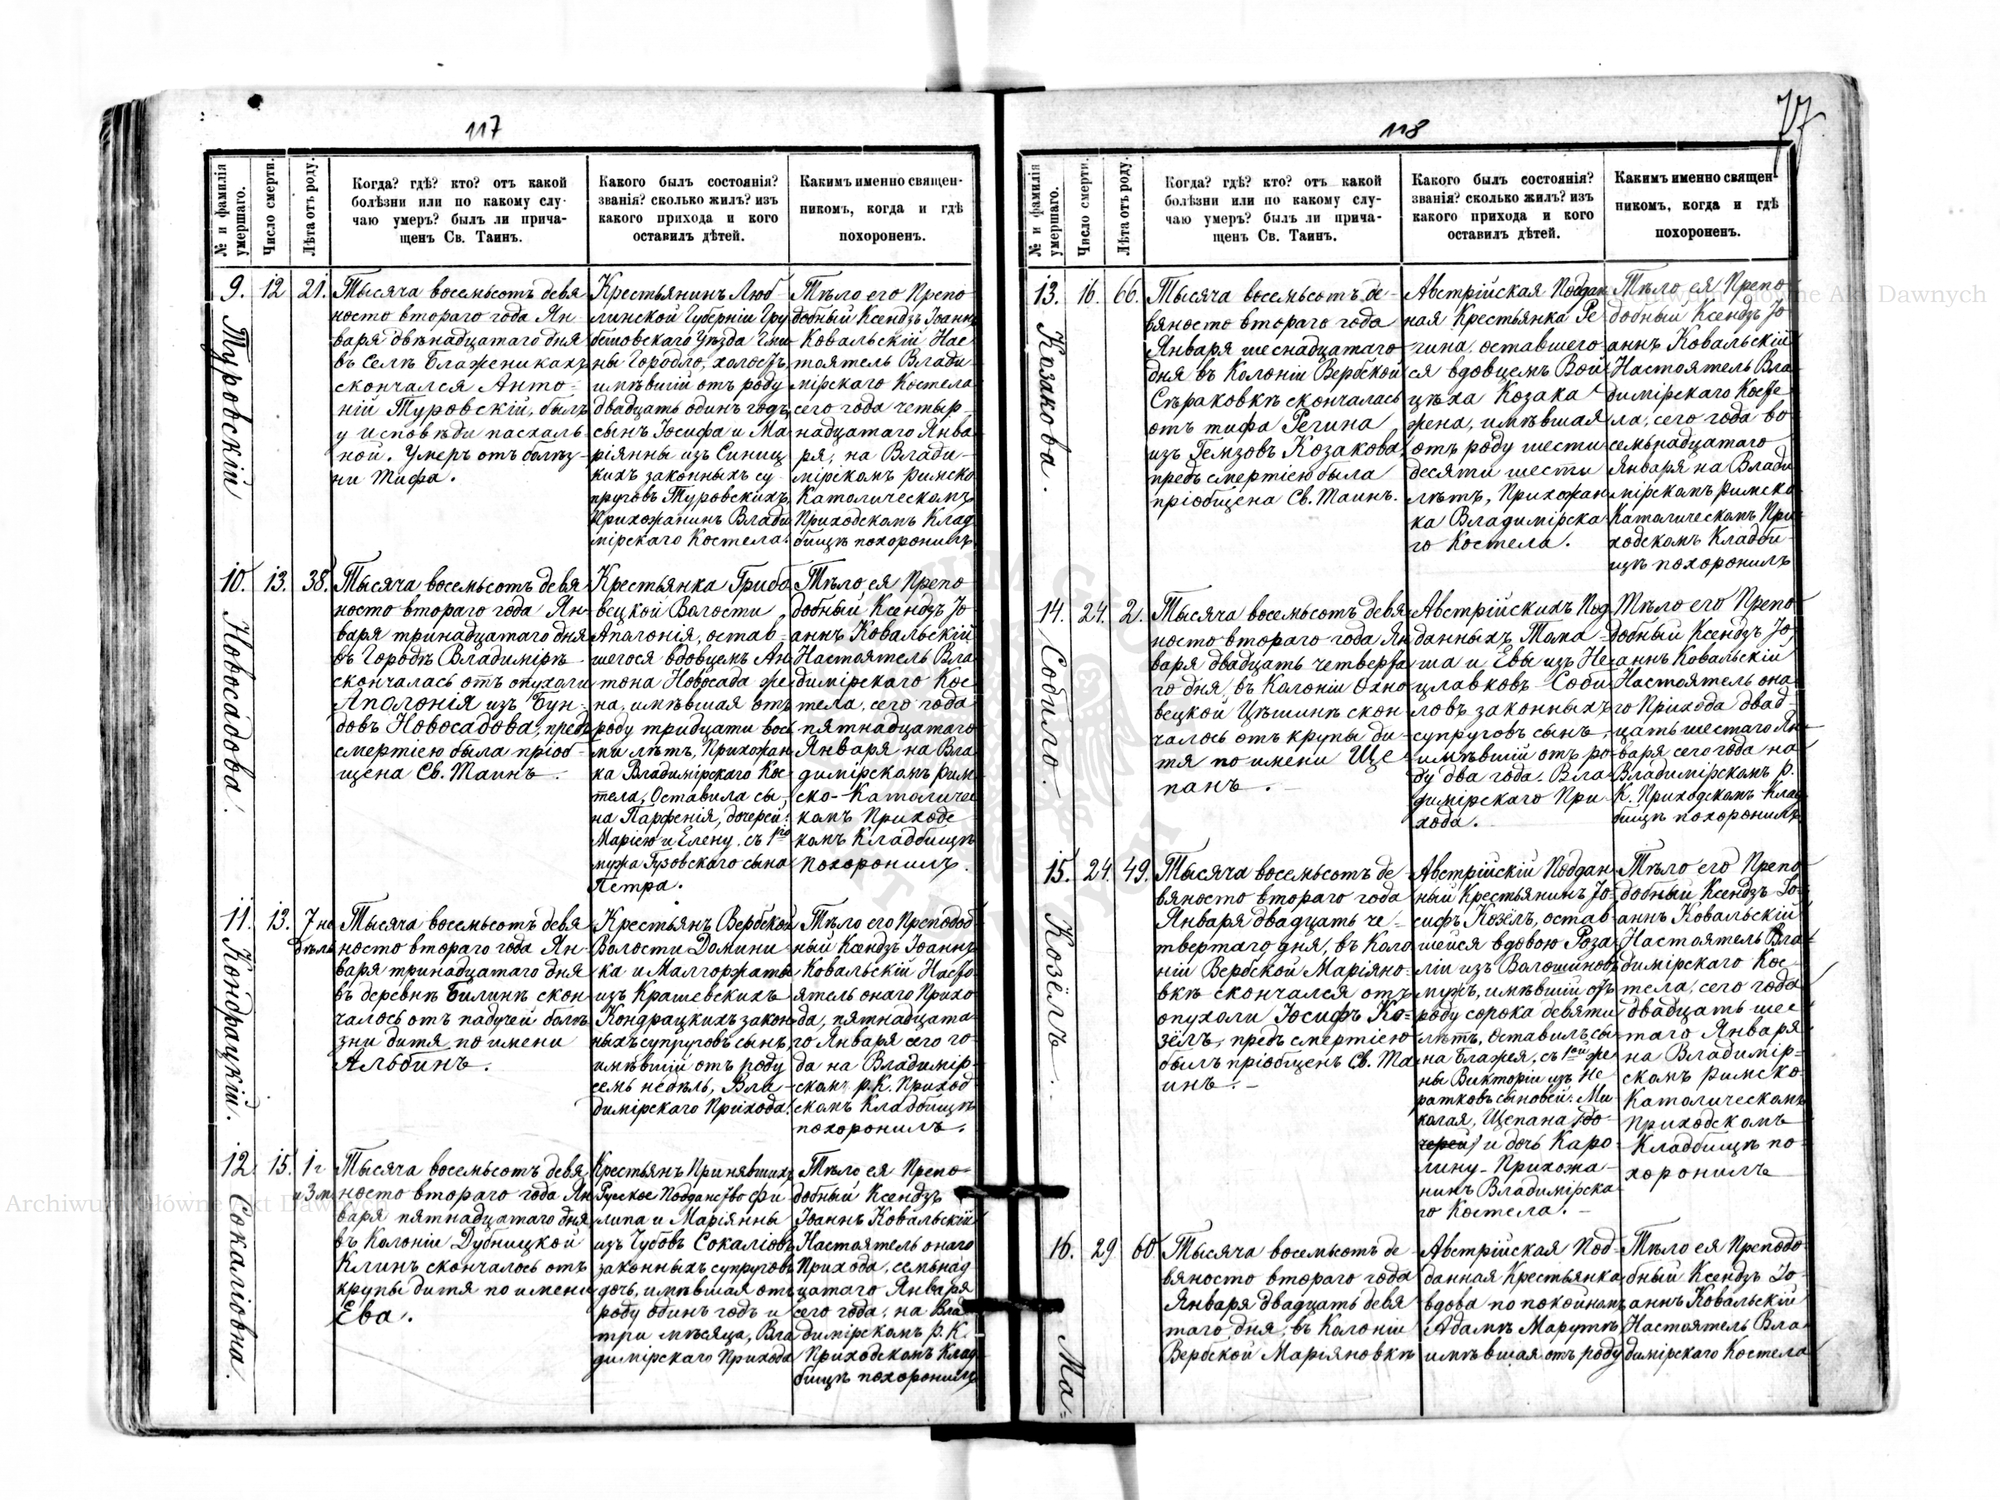 117
№ и фамилія умершаго.
Число смерти.
Лѣта отъ роду.
Когда? гдѣ? кто? отъ какой
болѣзни или по какому слу-
чаю умеръ? былъ ли прича-
щенъ Св. Таинъ.
Какого былъ состоянія?
званія? сколько жилъ? изъ
какого прихода и кого
оставилъ дѣтей.
Какимъ именно священ-
никомъ, когда и гдѣ
похороненъ.
9. Туровскій
12
21.
Тысяча восемьсотъ девя
носто втораго года Ян-
варя двѣнадцатаго дня
въ Селѣ Блаженикахъ
скончался Анто-
ній Туровскій, былъ
у исповѣди пасхаль-
ной. Умеръ отъ болѣз-
ни тифа.
Крестьянинъ Люб-
линской Губерніи Гру
бешовскаго Уѣзда Гми
ны Городло, холостъ,
имѣвшій отъ роду
двадцать одинъ годъ,
сынъ Іосифа и Ма
ріянны изъ Синиц
кихъ законныхъ су-
пруговъ Туровскихъ,
Прихожанинъ Влади
мірскаго Костела.
Тѣло его Препо-
добный Ксендзъ Іоаннъ
Ковальскій Нас
тоятель Влади
мірскаго Костела
сего года четыр
надцатаго Янва
ря, на Влади-
мірскомъ римско
Католическомъ
Приходскомъ Клад
бищѣ похоронилъ
10. Новосадова.
13.
38.
Тысяча восемьсотъ девя
носто втораго года Ян-
варя тринадцатаго дня
въ Городѣ Владимірѣ
скончалась отъ опухоли
Аполонія изъ Бун-
довъ Новосадова, предъ
смертію была пріоб-
щена Св. Таинъ.
Крестьянка Грибо
вецкой Волости,
Аполонія, остав-
шегося вдовцемъ Ан
тона Новосада же
на, имѣвшая отъ
роду тридцати вось
ми лѣтъ, Прихожан
ка Владимірскаго Кос
тела, Оставила сы-
на Парфенія, дочерей:
Марію и Елену, съ 1го
мужа Гузовскаго сына
Петра.
Тѣло ея Препо
добный Ксендзъ Іо
аннъ Ковальскій
Настоятель Вла
димірскаго Кос
тела, сего года
пятнадцатаго
Января на Вла
димірскомъ рим
ско-Католичес
комъ Приходс
комъ Кладбищѣ
похоронилъ.
11. Кондрацкій.
13.
7 не
дѣль
Тысяча восемьсотъ девя
носто втораго года Ян-
варя тринадцатаго дня
въ деревнѣ Билинѣ скон
чалось отъ падучей болѣ
зни дитя по имени
Альбинъ.
Крестьянъ Вербской
Волости Домини
ка и Малгоржаты
изъ Крашевскихъ
Кондрацкихъ закон
ныхъ супруговъ сынъ,
имѣвшій отъ роду
семь недѣль, Вла-
димірскаго Прихода.
Тѣло его Преподоб
ный Ксендзъ Іоаннъ
Ковальскій Насто
ятель онаго Прихо
да, пятнадцата
го Января сего го-
да на Владимір-
скомъ р.К. Приход
скомъ Кладбищѣ
похоронилъ.
12 Сокаліовна.
15.
1 г
и 3 м.
Тысяча восемьсотъ девя
носто втораго года Ян
варя пятнадцатаго дня
въ Колоніи Дубницкой
Клинъ скончалось отъ
крупы дитя по имени
Ева.
Крестьянъ Принявшихъ
Русское Подданство Фи
липа и Маріянны
изъ Чубовъ Сокаліовъ
законныхъ супруговъ
дочь, имѣвшая отъ
роду одинъ годъ и
три мѣсяца, Вла
димірскаго Прихода
Тѣло ея Препо-
добный Ксендзъ
Іоаннъ Ковальскій
Настоятель онаго
Прихода, семьнад
цатаго Января
сего года, на Вла
димірскомъ р.К.
Приходскомъ Клад
бищѣ похоронилъ
118
77.
№ и фамилія умершаго.
Число смерти.
Лѣта отъ роду.
Когда? гдѣ? кто? отъ какой
болѣзни или по какому слу-
чаю умеръ? былъ ли прича-
щенъ Св. Таинъ.
Какого былъ состоянія?
званія? сколько жилъ? изъ
какого прихода и кого
оставилъ дѣтей.
Какимъ именно священ-
никомъ, когда и гдѣ
похороненъ.
13. Козакова.
16.
66.
Тысяча восемьсотъ де-
вяносто втораго года
Января шеснадцатаго
дня въ Колоніи Вербской
Сѣраковкѣ скончалась
отъ тифа Регина
изъ Гемзовъ Козакова,
предъ смертію была
пріобщена Св. Таинъ.
Австрійская Поддан
ная Крестьянка Ре
гина, оставшего
ся вдовцемъ Вой
цѣха Козака
жена, имѣвшая
отъ роду шести
десяти шести
лѣтъ, Прихожан
ка Владимірска
го Костела.
Тѣло ея Препо
добный Ксендзъ Іо
аннъ Ковальскій
Настоятель Вла
димірскаго Косте
ла, сего года во
семьнадцатаго
Января на Влади
мірскомъ римско
Католическомъ При
ходскомъ Кладби
щѣ похоронилъ
14. Собило.
24.
2.
Тысяча восемьсотъ девя
носто втораго года Ян
варя двадцать четверта
го дня, въ Колоніи Охно
вецкой Цѣшинѣ скон
чалось отъ крупы ди-
тя по имени Ще
панъ.
Австрійскихъ Под
данныхъ Тома-
ша и Евы изъ Не
цлавковъ Соби
ловъ законныхъ
супруговъ сынъ,
имѣвшій отъ ро-
ду два года. Вла
димірскаго При
хода.
Тѣло его Препо
добный Ксендзъ Іо
аннъ Ковальскій
Настоятель она
го Прихода двад
цать шестаго Ян
варя сего года на
Владимірскомъ р.
К. Приходскомъ Клад
бищѣ похоронилъ
15. Козёлъ.
24.
49.
Тысяча восемьсотъ де
вяносто втораго года
Января двадцать че-
твертаго дня, въ Коло
ніи Вербской Маріяно-
вкѣ скончался отъ
опухоли Іосифъ Ко-
зёлъ, предъ смертію
былъ пріобщенъ Св. Та
инъ.
Австрійскій Поддан
ный Крестьянинъ Іо
сифъ Козёлъ, остав
шейся вдовою Роза
ліи изъ Волошиновъ
мужъ, имѣвшій отъ
роду сорока девяти
лѣтъ, Оставилъ сы
на Блажея, съ 1ой же
ны Викторіи изъ Не
ратковъ сыновей: Ми
колая, Щепана (до
черей) и дочь Каро
лину- Прихожа-
нинъ Владимірска
го Костела.
Тѣло его Препо
добный Ксендзъ Іо-
аннъ Ковальскій
Настоятель Вла-
димірскаго Кос
тела, сего года
двадцать шес
таго Января
на Владимір-
скомъ римско-
Католическомъ
Приходскомъ
Кладбищѣ по-
хоронилъ
16. Ма-
29
60
Тысяча восемьсотъ де
вяносто втораго года
Января двадцать девя
таго дня, въ Колоніи
Вербской Маріяновкѣ
Австрійская Под-
данная Крестьянка
вдова по покойномъ
Адамѣ Марутѣ
имѣвшая отъ роду
Тѣло ея Преподо
бный Ксендзъ Іо-
аннъ Ковальскій
Настоятель Вла
димірскаго Костела
Archiwum Główne Akt Dawnych
Archiwum Główne Akt Dawnych